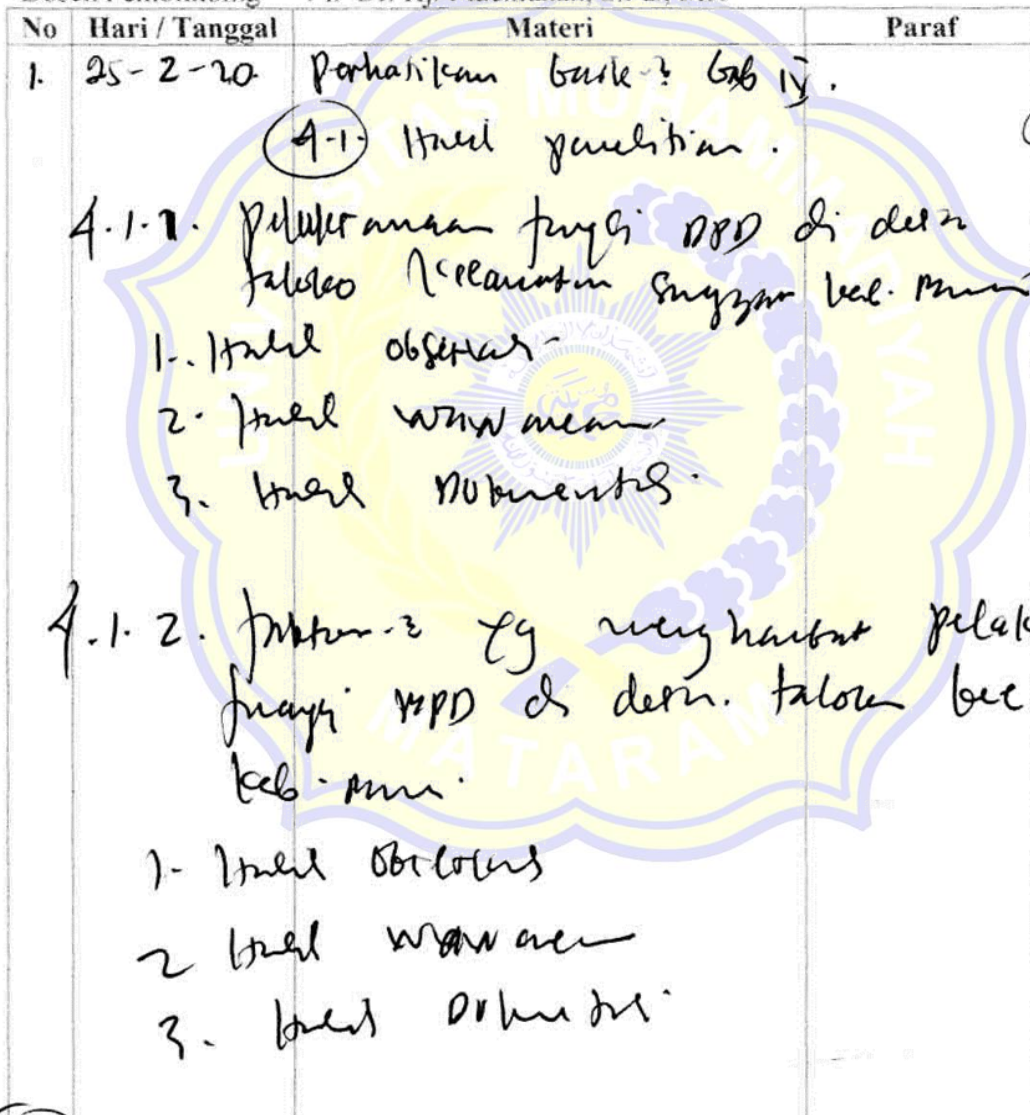 No Hari / Tanggal Materi Paraf
1. 25-2-20 Perhatikan Bab IV.
4.1. Hasil penelitian.
4.1.1. Pelaksanaan fungsi BPD di desa
taloko Kecamatan Sanggar kab. Bima
1. Hasil observasi
2. Hasil wawancara
3. Hasil Dokumentasi
4.1.2. faktor-2 yg menghambat pelak
fungsi BPD di desa. taloko kec
kab. Bima.
1- Hasil Observasi
2 Hasil wawancara
3. Hasil Dokumentasi
UNIVERSITAS MUHAMMADIYAH
MATARAM